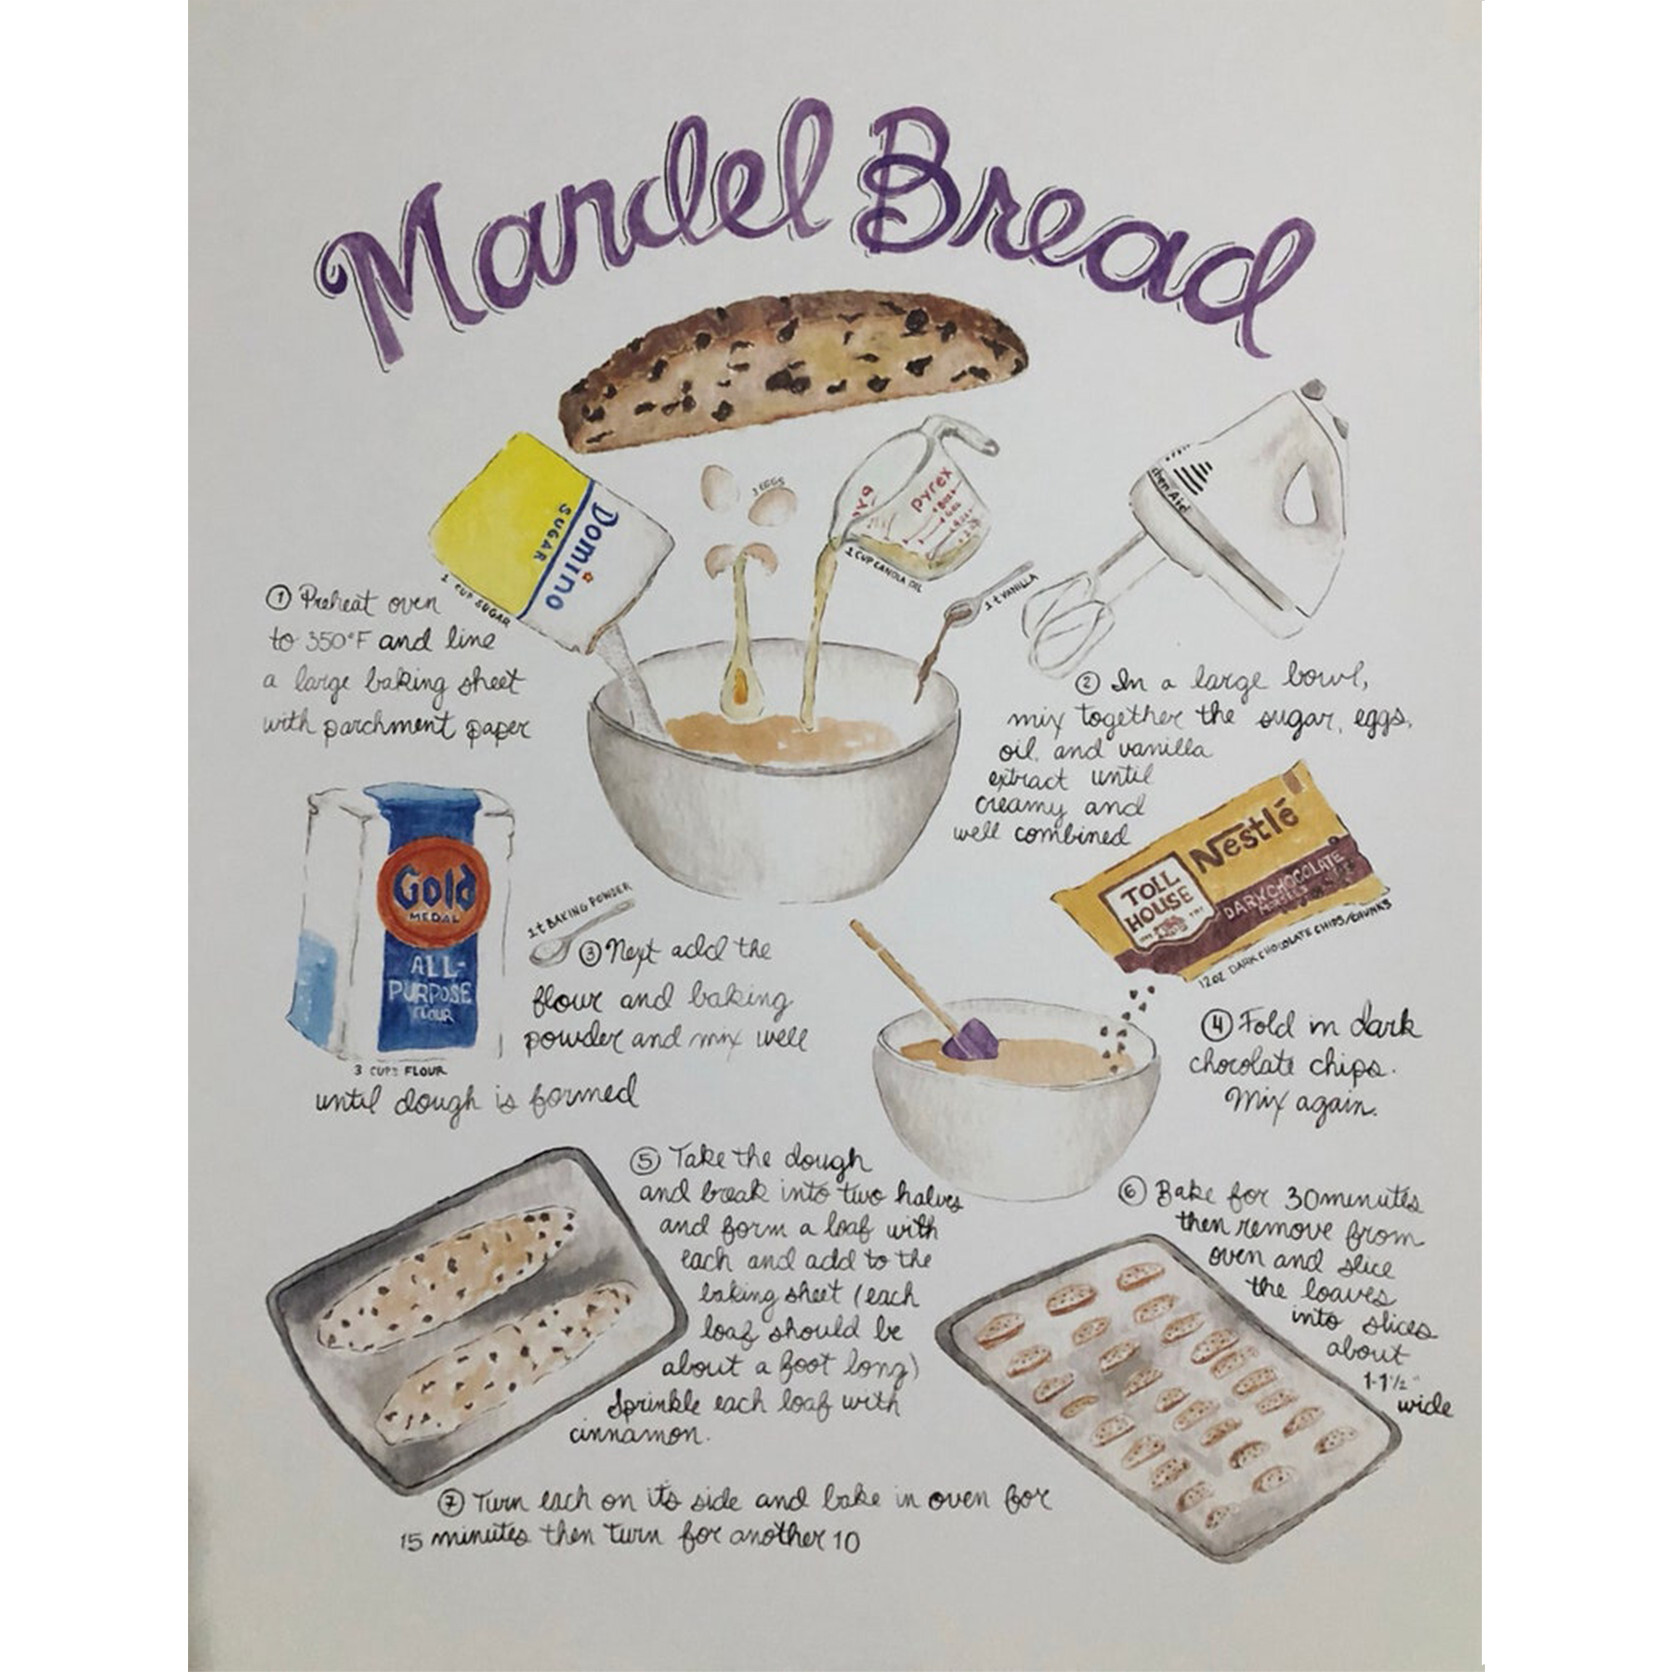 Mandel Bread
Domino
SUGAR
1 CUP SUGAR
3 EGGS
pyrex
1 CUP CANOLA OIL
1 t VANILLA
chen Aid
① Preheat oven
to 350°F and line
a large baking sheet
with parchment paper
② In a large bowl,
mix together the sugar, eggs,
oil, and vanilla
extract until
creamy and
well combined
Gold
MEDAL
ALL-
PURPOSE
FLOUR
3 CUPS FLOUR
1 t BAKING POWDER
③ Next add the
flour and baking
powder and mix well
until dough is formed
Nestlé
TOLL
HOUSE
DARK CHOCOLATE
12 OZ DARK CHOCOLATE CHIPS/CHUNKS
④ Fold in dark
chocolate chips.
Mix again.
⑤ Take the dough
and break into two halves
and form a loaf with
each and add to the
baking sheet (each
loaf should be
about a foot long)
Sprinkle each loaf with
cinnamon.
⑥ Bake for 30 minutes
then remove from
oven and slice
the loaves
into slices
about
1-1½"
wide
⑦ Turn each on its side and bake in oven for
15 minutes then turn for another 10